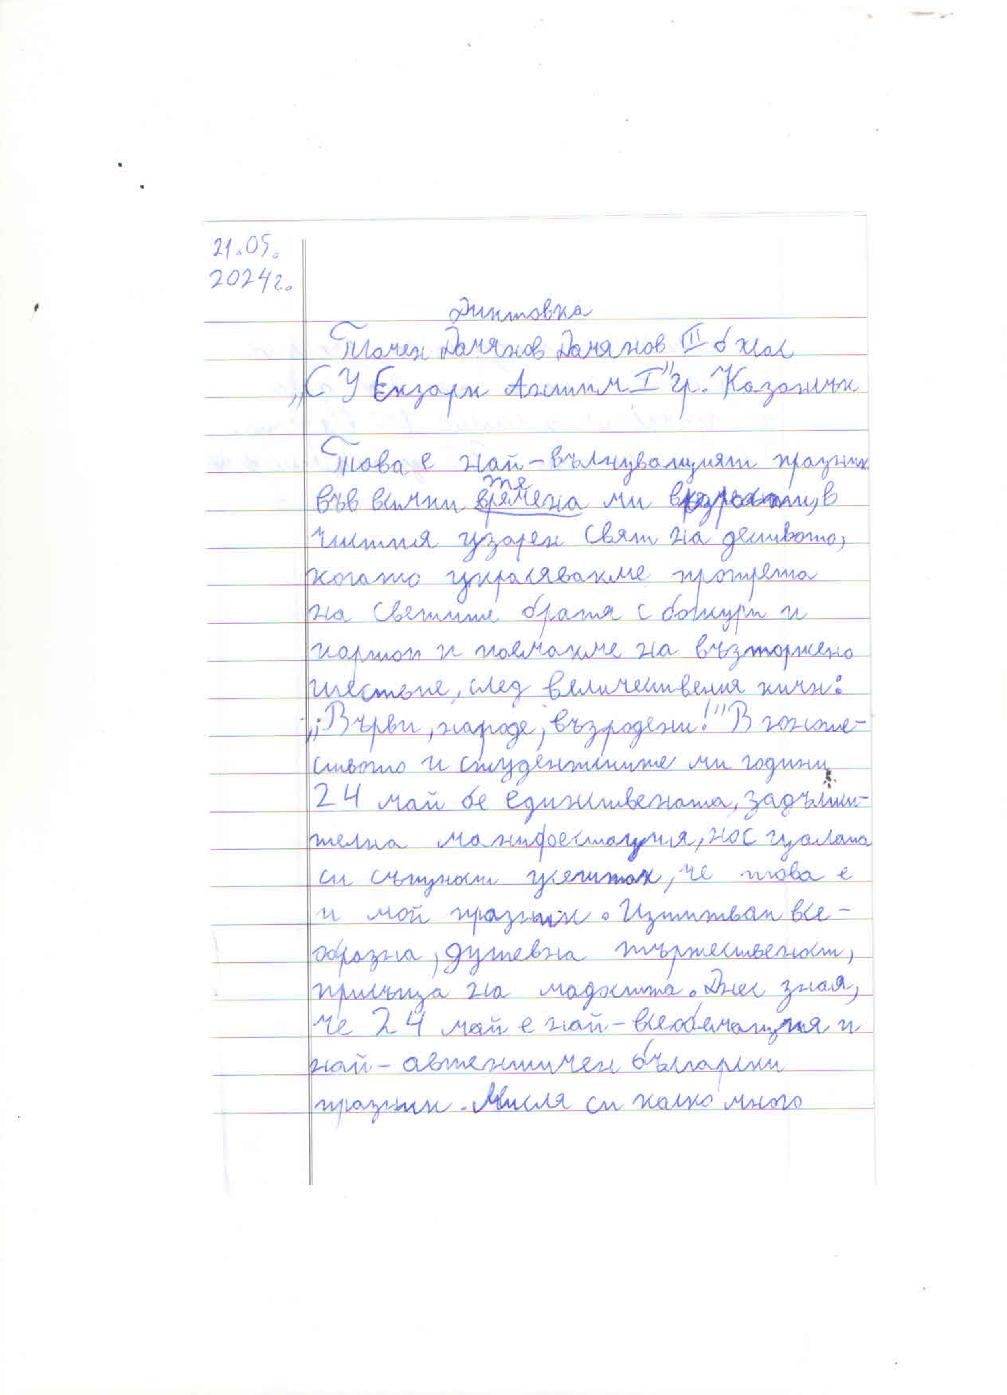 21.05.
2024г.
Диктовка
Дамянов Дамянов III б клас
„СУ Екзарх Антим I" гр. Казанлък
Това е най-вълнуващият празник
във всички времена ми възрасти, в
те
чистия узарен свят на детвото,
когато украсявахме протрета
на светите братя с божури и
поемахме на възторжено
шествие, след величествения химн:
„Върви, народе, възродени!" В юноше-
ството и студентските ми години
24 май бе единствената, задължи-
телна манифестация, но с цялата
си същност усетих, че това е
и мой празник. Изпитвам все-
образна, душевна тържественост,
присъща на младостта. Днес зная,
че 24 май е най-всеобемащия и
най-автентичен български
празник. Мисля си колко много